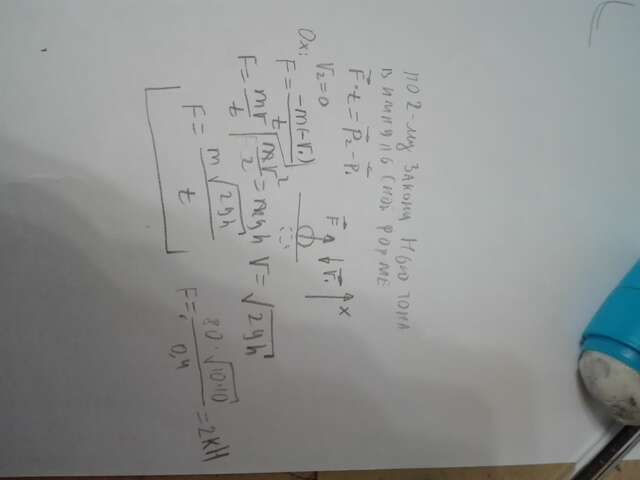 по 2-му закону Ньютона
в импульсной форме
F⃗·t = p⃗₂ - p⃗₁
V₂=0
Ox:
F = -m(-V₁)/t
F⃗ V⃗₁ x
F = mV/t | mV²/2 = mgh V = √2gh
F = m√2gh/t
F = 80·√10·10/0,4 = 2кН